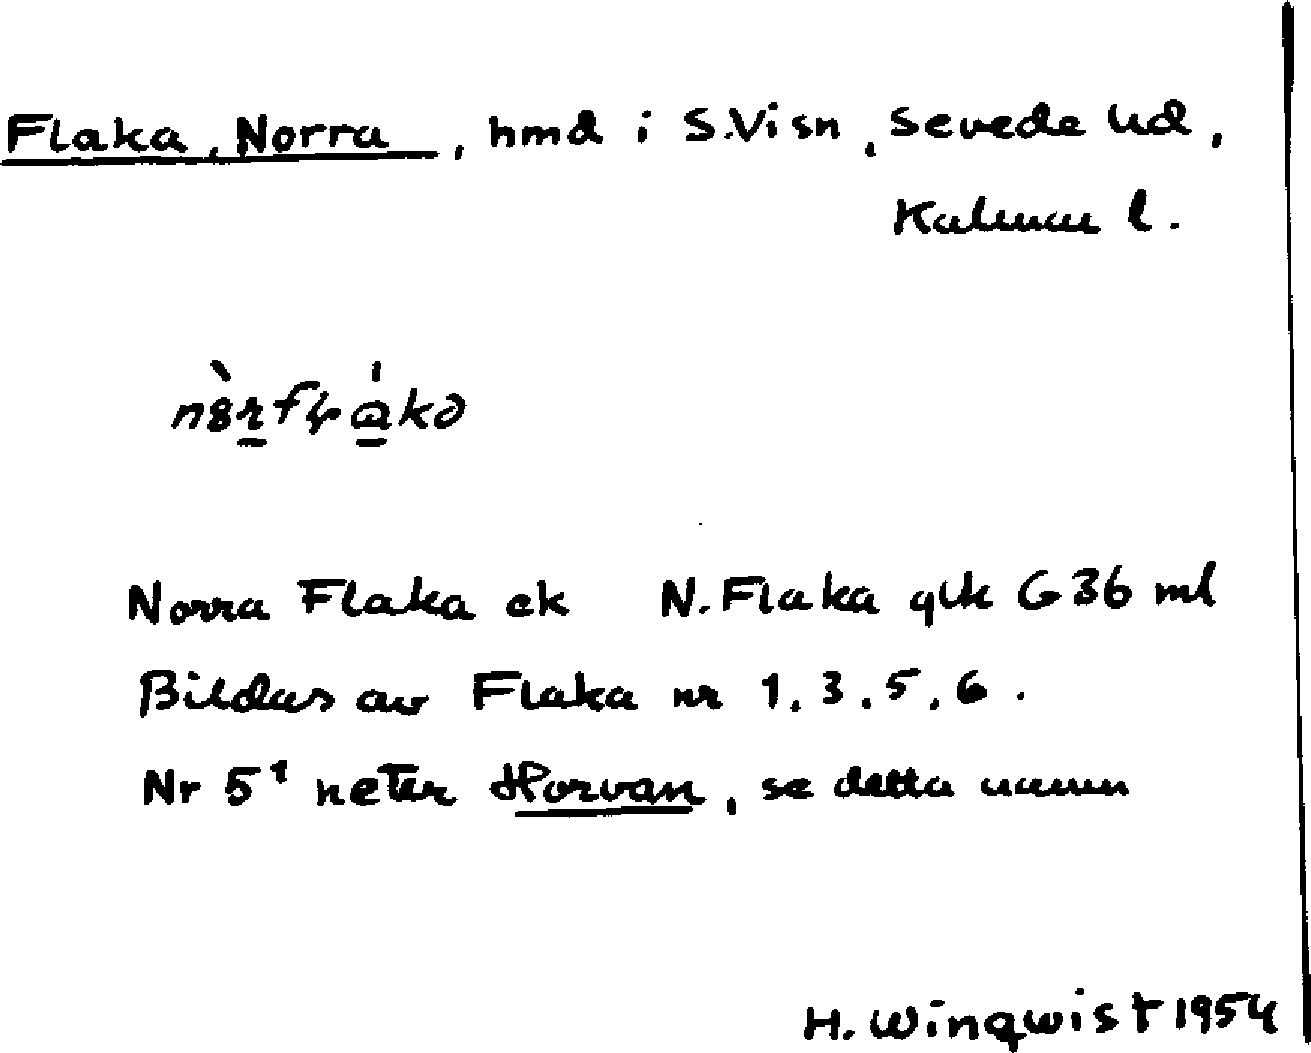 Flaka, Norra, hmd i S.Visn, Sevede hd,
Kalmar l.
Norra Flaka ek N. Flaka glk G36 ml
Bildas av Flaka nr 1, 3, 5, 6.
Nr 5¹ heter Horvan, se detta namn
H. Winqwist 1954